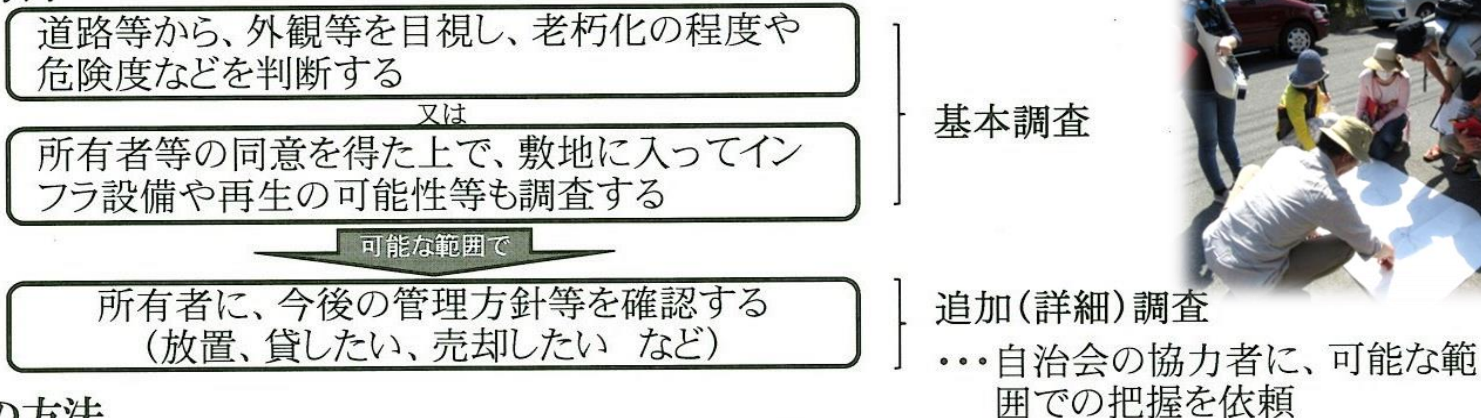 道路等から、外観等を目視し、老朽化の程度や
危険度などを判断する
又は
所有者等の同意を得た上で、敷地に入ってイン
フラ設備や再生の可能性等も調査する
基本調査
可能な範囲で
所有者に、今後の管理方針等を確認する
（放置、貸したい、売却したい　など）
追加（詳細）調査
・・・自治会の協力者に、可能な範
囲での把握を依頼
の方法